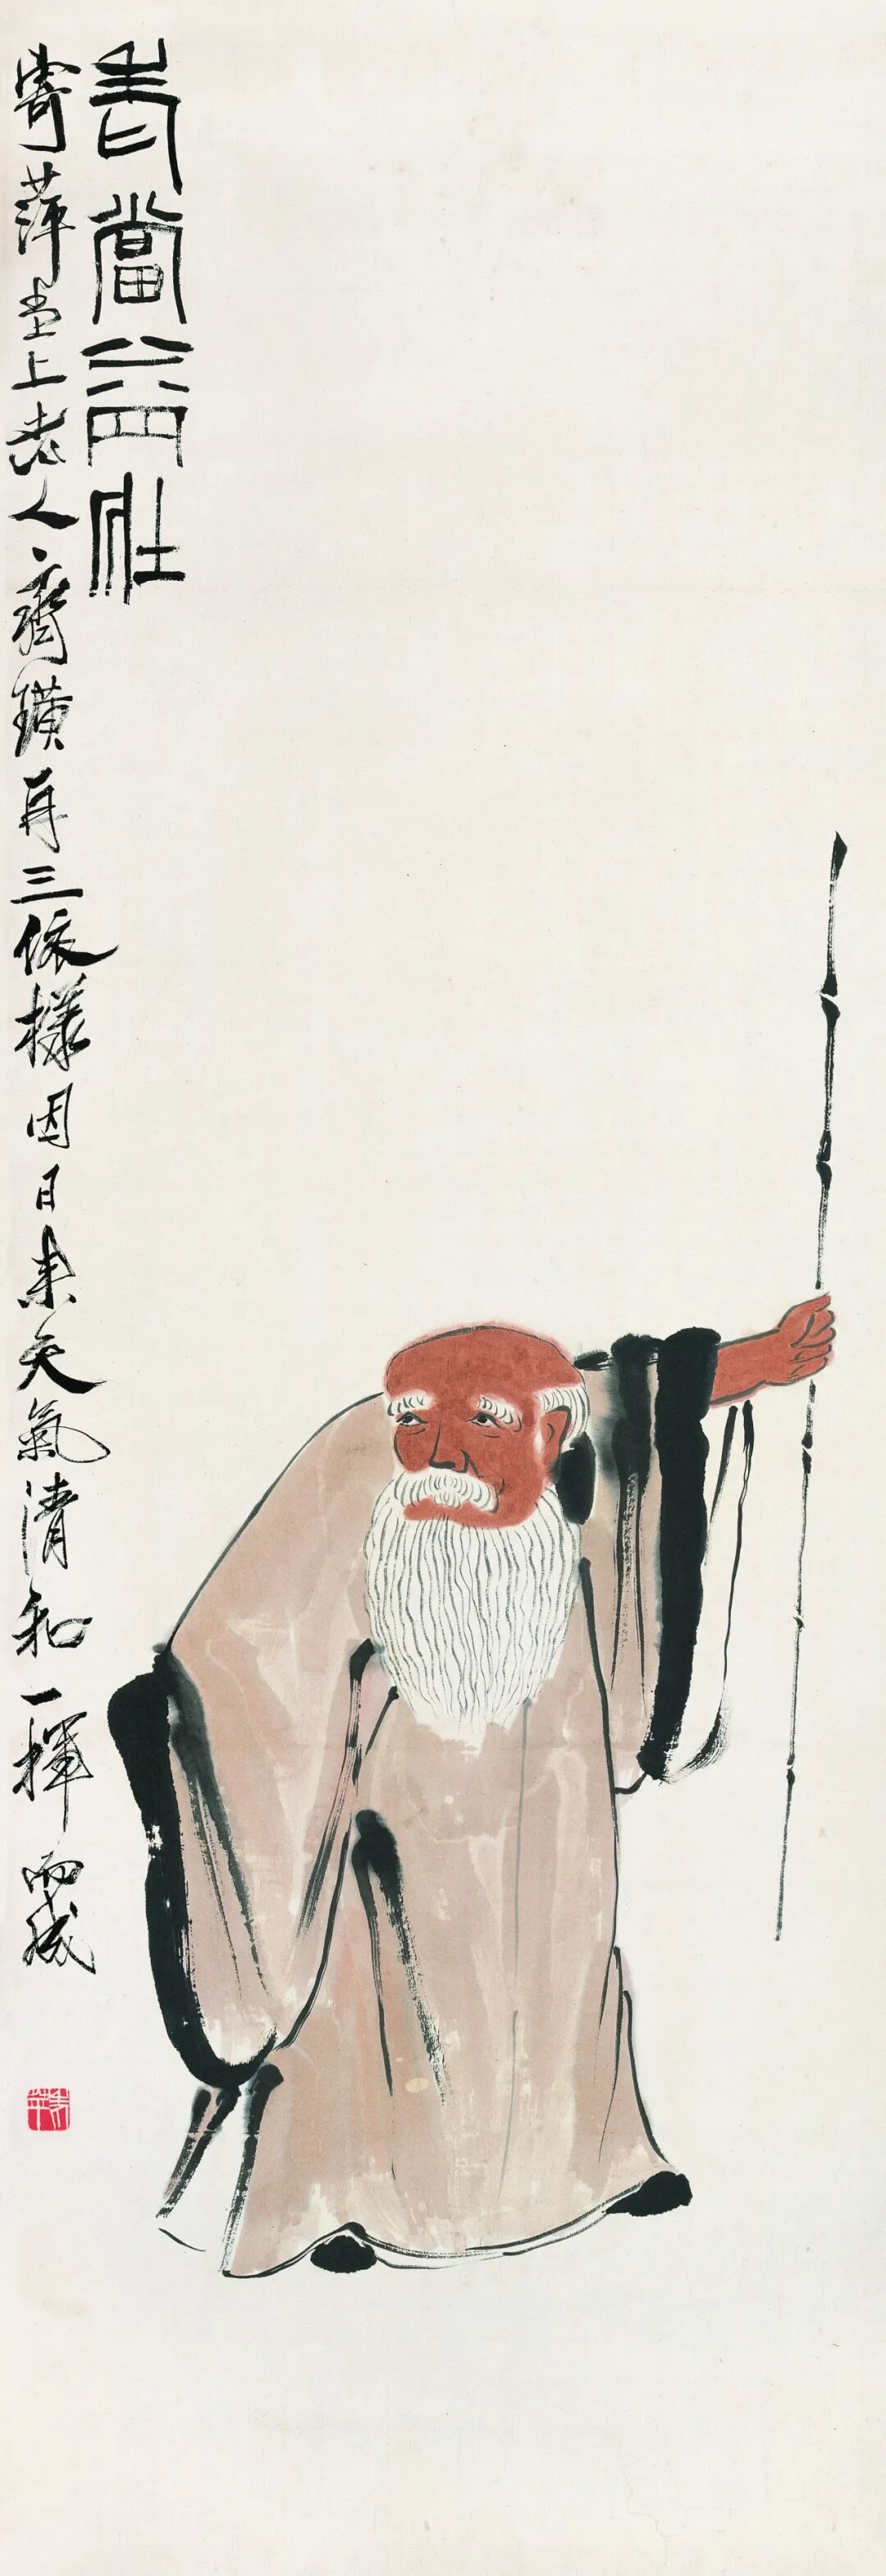 老當益壯
寄萍堂上老人齊璜再三依樣因日來天氣清和一揮而成
木人